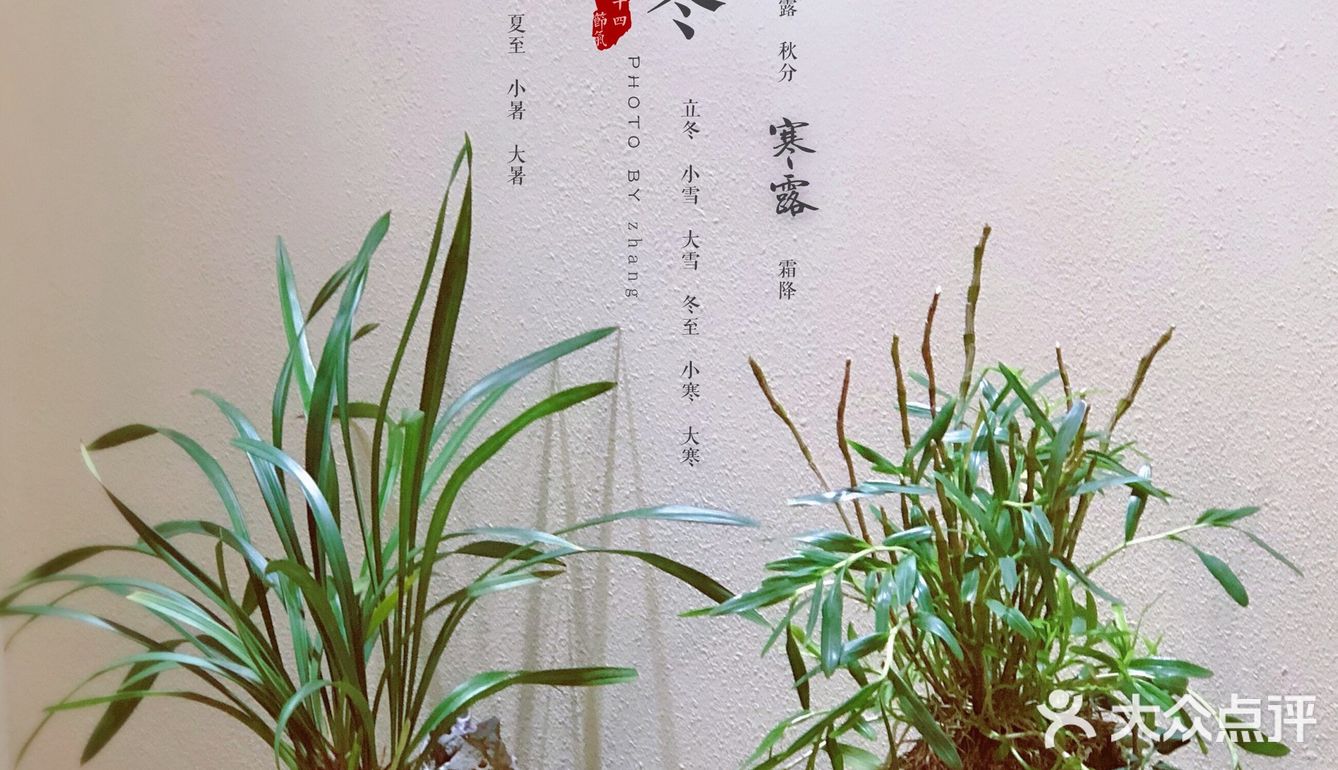 露 秋分 寒露 霜降
冬
立冬 小雪 大雪 冬至 小寒 大寒
十四
節氣
PHOTO BY zhang
夏至 小暑 大暑
大众点评